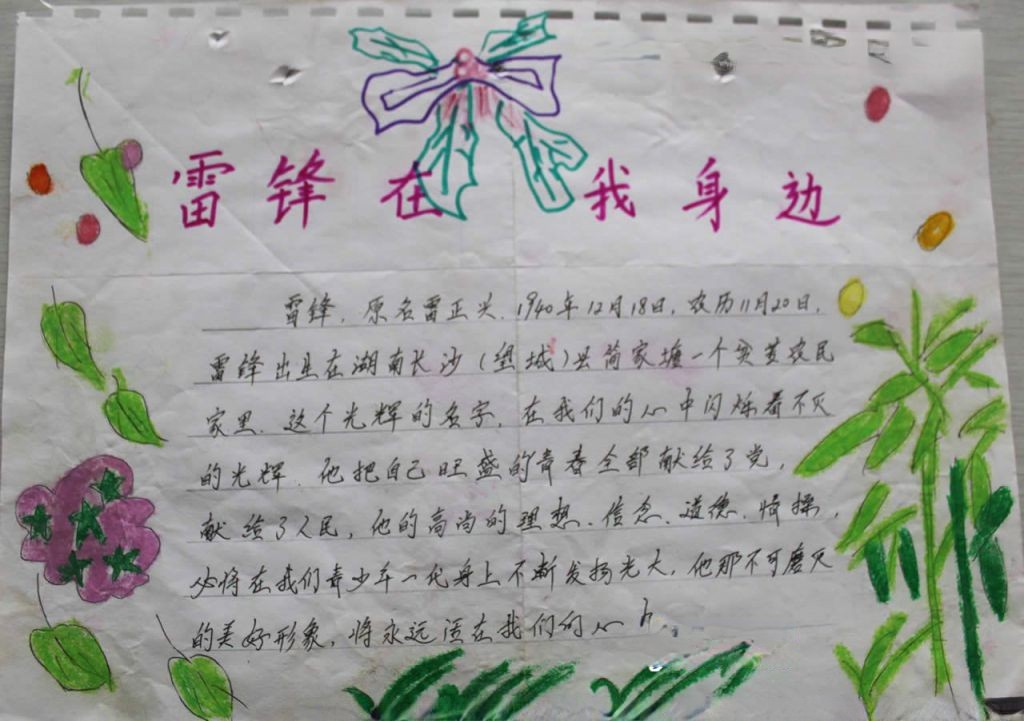 雷锋在我身边
雷锋,原名雷正兴,1940年12月18日,农历11月20日,
雷锋出生在湖南长沙(望城)县简家塘一个贫苦农民
家里.这个光辉的名字,在我们的心中闪烁着不灭
的光辉.他把自己旺盛的青春全部献给了党,
献给了人民,他的高尚的理想、信念、道德、情操,
必将在我们青少年一代身上不断发扬光大,他那不可磨灭
的美好形象,将永远活在我们的心中.